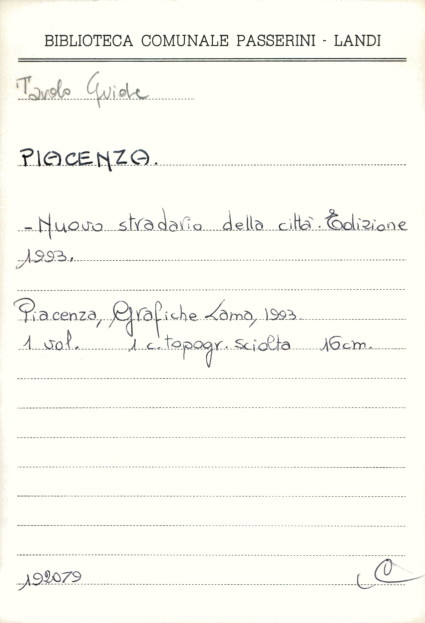 BIBLIOTECA COMUNALE PASSERINI - LANDI
Tavolo Guide
PIACENZA.
- Nuovo stradario della città. Edizione
1993.
Piacenza, Grafiche Lama, 1993.
1 vol. 1 c. topogr. sciolta 16cm.
192079